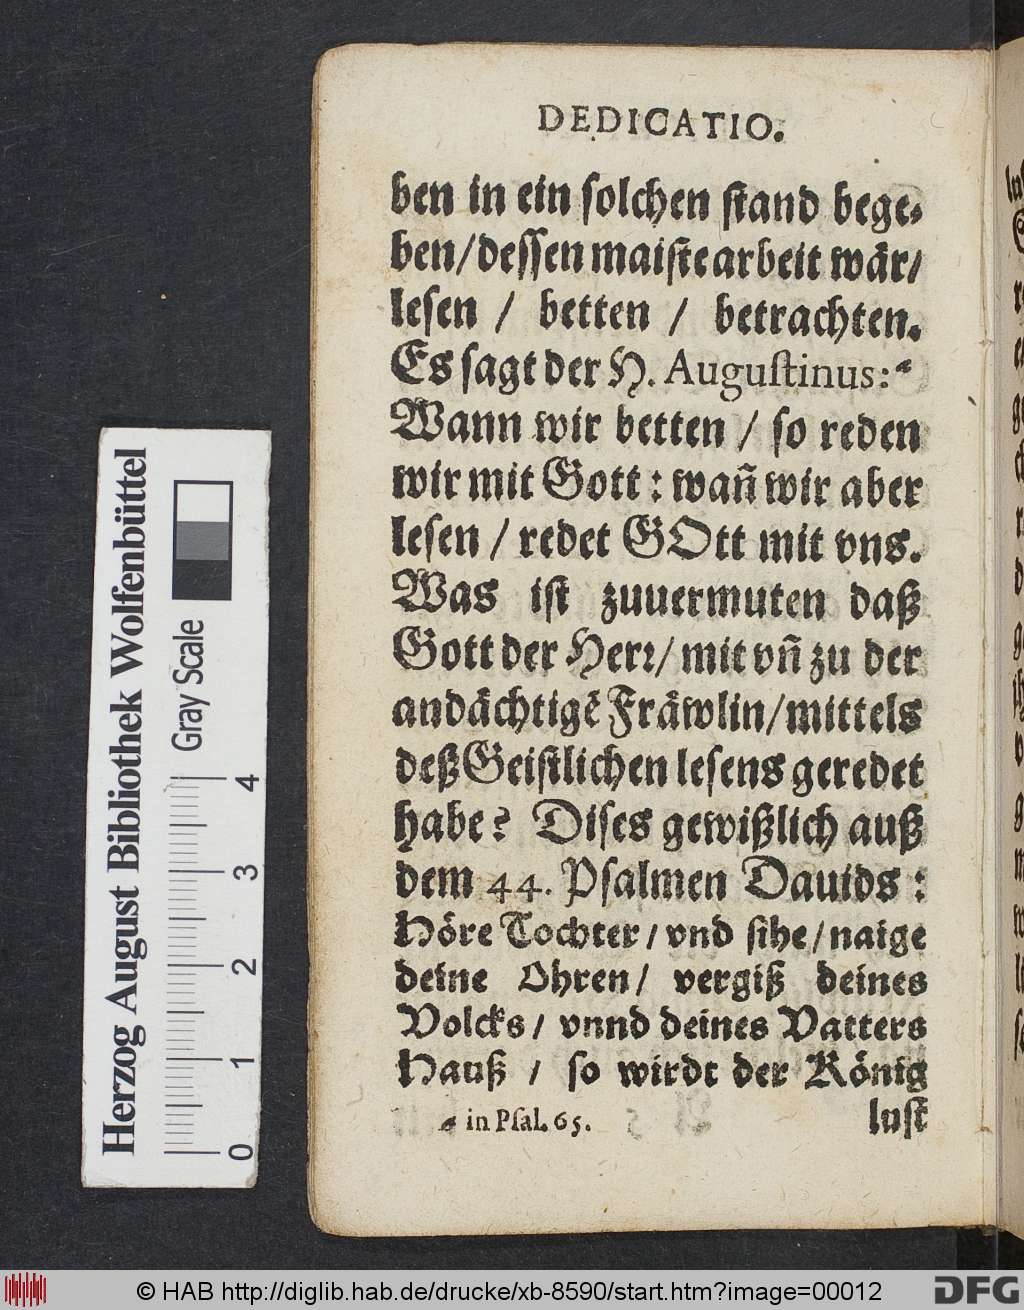 DEDICATIO.
ben in ein solchen stand bege-
ben/dessen maiste arbeit wär/
lesen / betten / betrachten.
Es sagt der H. Augustinus: a
Wann wir betten / so reden
wir mit Gott : wañ wir aber
lesen / redet GOtt mit vns.
Was ist zuuermuten daß
Gott der Herr/ mit vñ zu der
andächtigẽ Fräwlin/mittels
deß Geistlichen lesens geredet
habe? Dises gewißlich auß
dem 44. Psalmen Dauids :
Höre Tochter/ vnd sihe/ naige
deine Ohren/ vergiß deines
Volcks/ vnnd deines Vatters
Hauß / so wirdt der König
a in Psal. 65. lust
Herzog August Bibliothek Wolfenbüttel
Gray Scale
0 1 2 3 4
© HAB http://diglib.hab.de/drucke/xb-8590/start.htm?image=00012
DFG